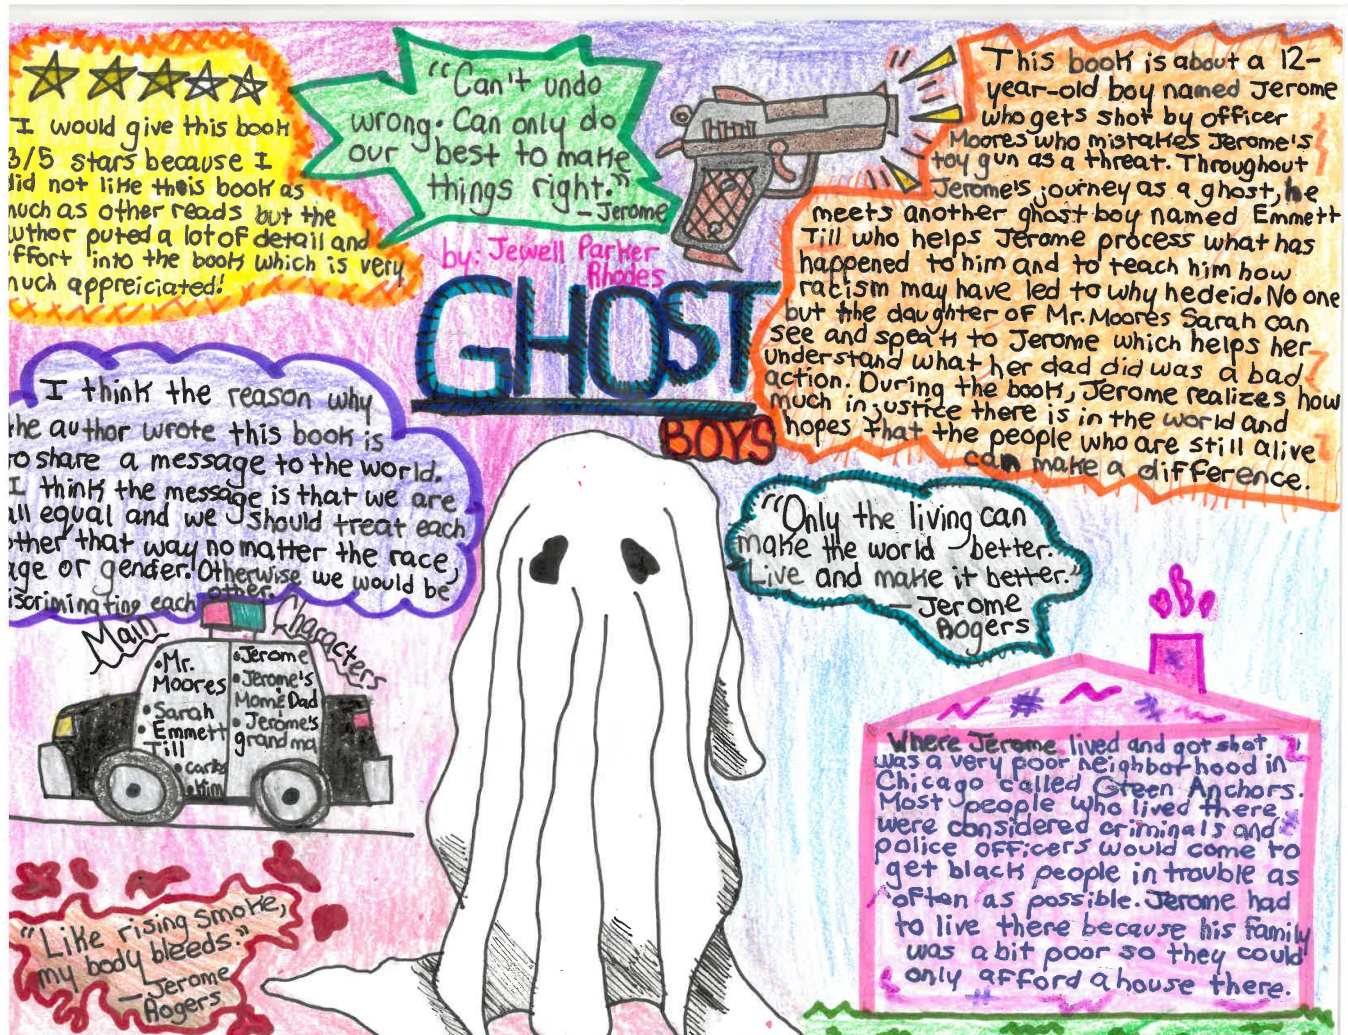 I would give this book
3/5 stars because I
did not like this book as
much as other reads but the
author puted a lot of detail and
effort into the book which is very
much appreiciated!
"Can't undo
wrong. Can only do
our best to make
things right."
- Jerome
by: Jewell Parker
Rhodes
GHOST
BOYS
This book is about a 12-
year-old boy named Jerome
who gets shot by officer
Moores who mistakes Jerome's
toy gun as a threat. Throughout
Jerome's journey as a ghost, he
meets another ghost boy named Emmett
Till who helps Jerome process what has
happened to him and to teach him how
racism may have led to why hedeid. No one
but the daughter of Mr. Moores Sarah can
see and speak to Jerome which helps her
understand what her dad did was a bad
action. During the book, Jerome realizes how
much injustice there is in the world and
hopes that the people who are still alive
can make a difference.
I think the reason why
the author wrote this book is
to share a message to the world.
I think the message is that we are
all equal and we should treat each
other that way no matter the race,
age or gender. Otherwise we would be
discriminating each other.
"Only the living can
make the world better.
Live and make it better."
- Jerome
Rogers
Main Characters
• Mr.
Moores
• Sarah
• Emmett
Till
• Carlos
• Kim
• Jerome
• Jerome's
Mom & Dad
• Jerome's
grandma
"Like rising smoke,
my body bleeds."
- Jerome
Rogers
Where Jerome lived and got shot
was a very poor neighborhood in
Chicago called Green Anchors.
Most people who lived there
were considered criminals and
police officers would come to
get black people in trouble as
often as possible. Jerome had
to live there because his family
was a bit poor so they could
only afford a house there.